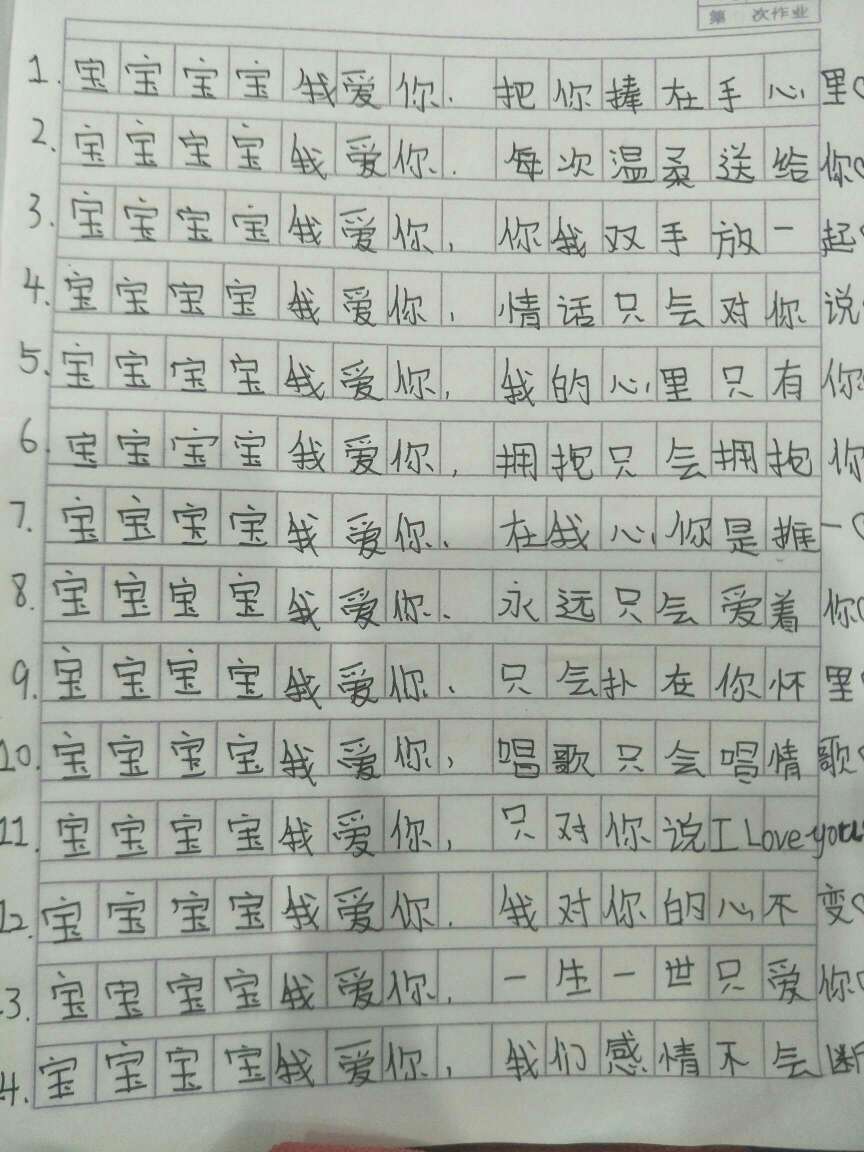 第 次作业
1. 宝宝宝宝我爱你. 把你捧在手心里♡
2. 宝宝宝宝我爱你. 每次温柔送给你♡
3. 宝宝宝宝我爱你, 你我双手放一起♡
4. 宝宝宝宝我爱你, 情话只会对你说
5. 宝宝宝宝我爱你, 我的心里只有你
6. 宝宝宝宝我爱你, 拥抱只会拥抱你
7. 宝宝宝宝我爱你、在我心你是推一♡
8. 宝宝宝宝我爱你、永远只会爱着你♡
9. 宝宝宝宝我爱你、只会扑在你怀里♡
10. 宝宝宝宝我爱你, 唱歌只会唱情歌♡
11. 宝宝宝宝我爱你, 只对你说I Love you
12. 宝宝宝宝我爱你. 我对你的心不变♡
3. 宝宝宝宝我爱你, 一生一世只爱你♡
4. 宝宝宝宝我爱你, 我们感情不会断